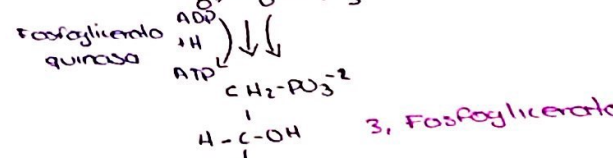 ADP
Fosfoglicerato +H
quinasa
ATP
CH2-PO3-2
H-C-OH
3, Fosfoglicerato